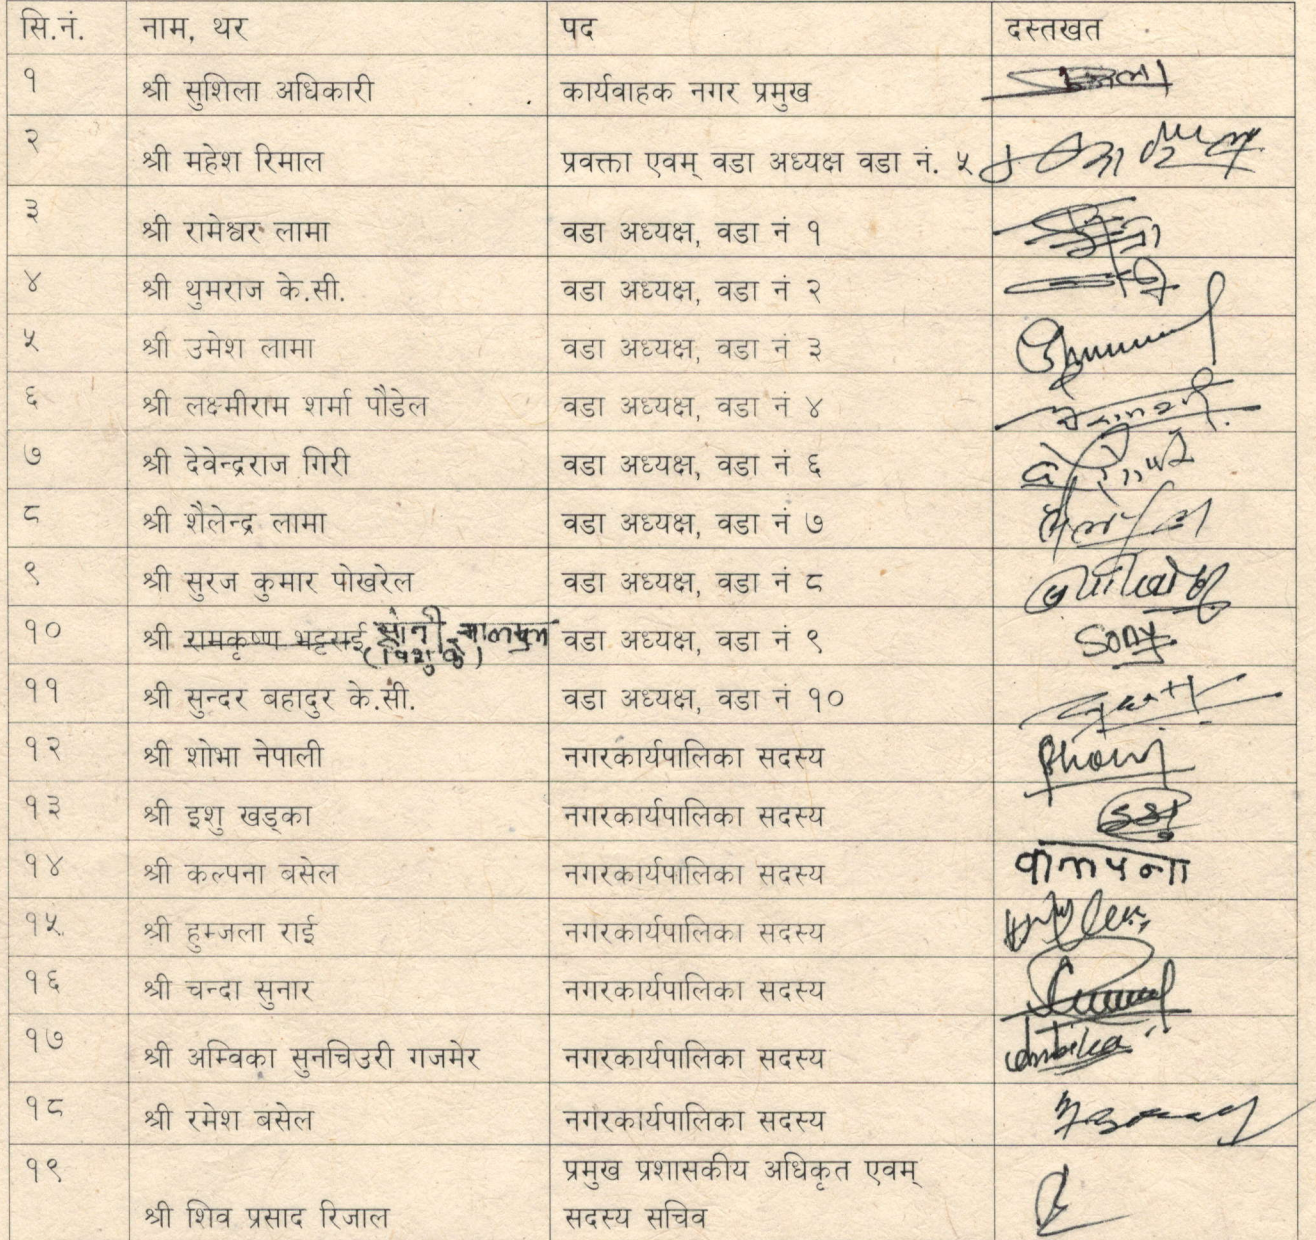 सि.नं. नाम, थर पद दस्तखत
१ श्री सुशिला अधिकारी कार्यवाहक नगर प्रमुख
२ श्री महेश रिमाल प्रवक्ता एवम् वडा अध्यक्ष वडा नं. ५
३ श्री रामेश्वर लामा वडा अध्यक्ष, वडा नं १
४ श्री थुमराज के.सी. वडा अध्यक्ष, वडा नं २
५ श्री उमेश लामा वडा अध्यक्ष, वडा नं ३
६ श्री लक्ष्मीराम शर्मा पौडेल वडा अध्यक्ष, वडा नं ४
७ श्री देवेन्द्रराज गिरी वडा अध्यक्ष, वडा नं ६
८ श्री शैलेन्द्र लामा वडा अध्यक्ष, वडा नं ७
९ श्री सुरज कुमार पोखरेल वडा अध्यक्ष, वडा नं ८
१० श्री रामकृष्ण भट्टराई वडा अध्यक्ष, वडा नं ९ Sony
११ श्री सुन्दर बहादुर के.सी. वडा अध्यक्ष, वडा नं १०
१२ श्री शोभा नेपाली नगरकार्यपालिका सदस्य
१३ श्री इशु खड्का नगरकार्यपालिका सदस्य
१४ श्री कल्पना बसेल नगरकार्यपालिका सदस्य कल्पना
१५ श्री हुम्जला राई नगरकार्यपालिका सदस्य
१६ श्री चन्दा सुनार नगरकार्यपालिका सदस्य
१७ श्री अम्विका सुनचिउरी गजमेर नगरकार्यपालिका सदस्य Ambika
१८ श्री रमेश बसेल नगरकार्यपालिका सदस्य
१९ प्रमुख प्रशासकीय अधिकृत एवम्
श्री शिव प्रसाद रिजाल सदस्य सचिव